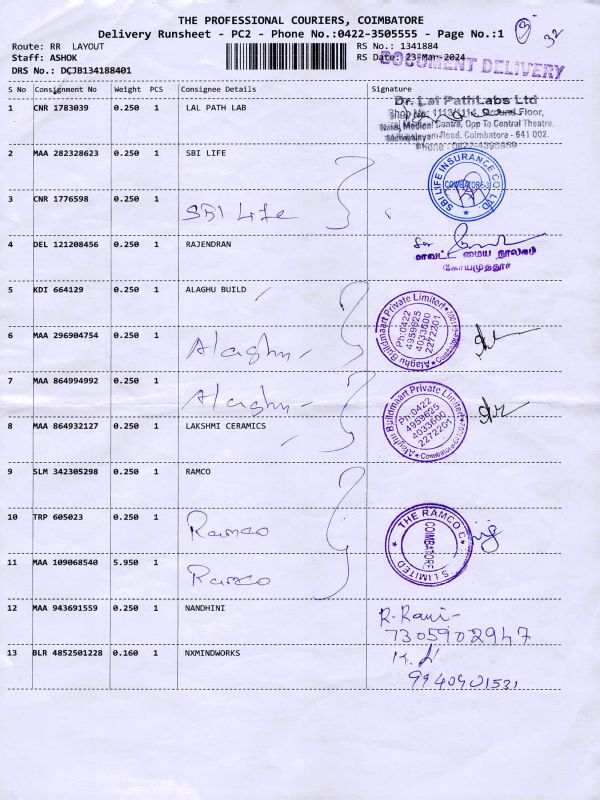 THE PROFESSIONAL COURIERS, COIMBATORE
Delivery Runsheet - PC2 - Phone No.:0422-3505555 - Page No.:1
Route: RR LAYOUT
RS No.: 1341884
Staff: ASHOK
RS Date: 23-Mar-2024
DOCUMENT DELIVERY
DRS No.: DCJB134188401
S No Consignment No Weight PCS Consignee Details Signature
1 CNR 1783039 0.250 1 LAL PATH LAB
Dr. Lal PathLabs Ltd
Shop No. 1113/1114, Ground Floor,
Medical Centre, Opp To Central Theatre,
Road, Coimbatore - 641 002.
Phone : 0422-4395959
2 MAA 282328623 0.250 1 SBI LIFE
SBI LIFE INSURANCE CO LTD
3 CNR 1776598 0.250 1 SBI Life
4 DEL 121208456 0.250 1 RAJENDRAN
மாவட்ட மைய நூலகம்
கோயமுத்தூர்
5 KDI 664129 0.250 1 ALAGHU BUILD
Alaghu Buildmaart Private Limited
Ph:0422
4959625
4033600
2272201
6 MAA 296904754 0.250 1 Alaghu
7 MAA 864994992 0.250 1 Alaghu
Alaghu Buildmaart Private Limited
Ph:0422
4959625
4033600
2272201
8 MAA 864932127 0.250 1 LAKSHMI CERAMICS
9 SLM 342305298 0.250 1 RAMCO
10 TRP 605023 0.250 1 Ramco
THE RAMCO C
S LIMITED
COIMBATORE
11 MAA 109068540 5.950 1 Ramco
12 MAA 943691559 0.250 1 NANDHINI
R. Rani
7305902947
13 BLR 4852501228 0.160 1 NXMINDWORKS
9940901531